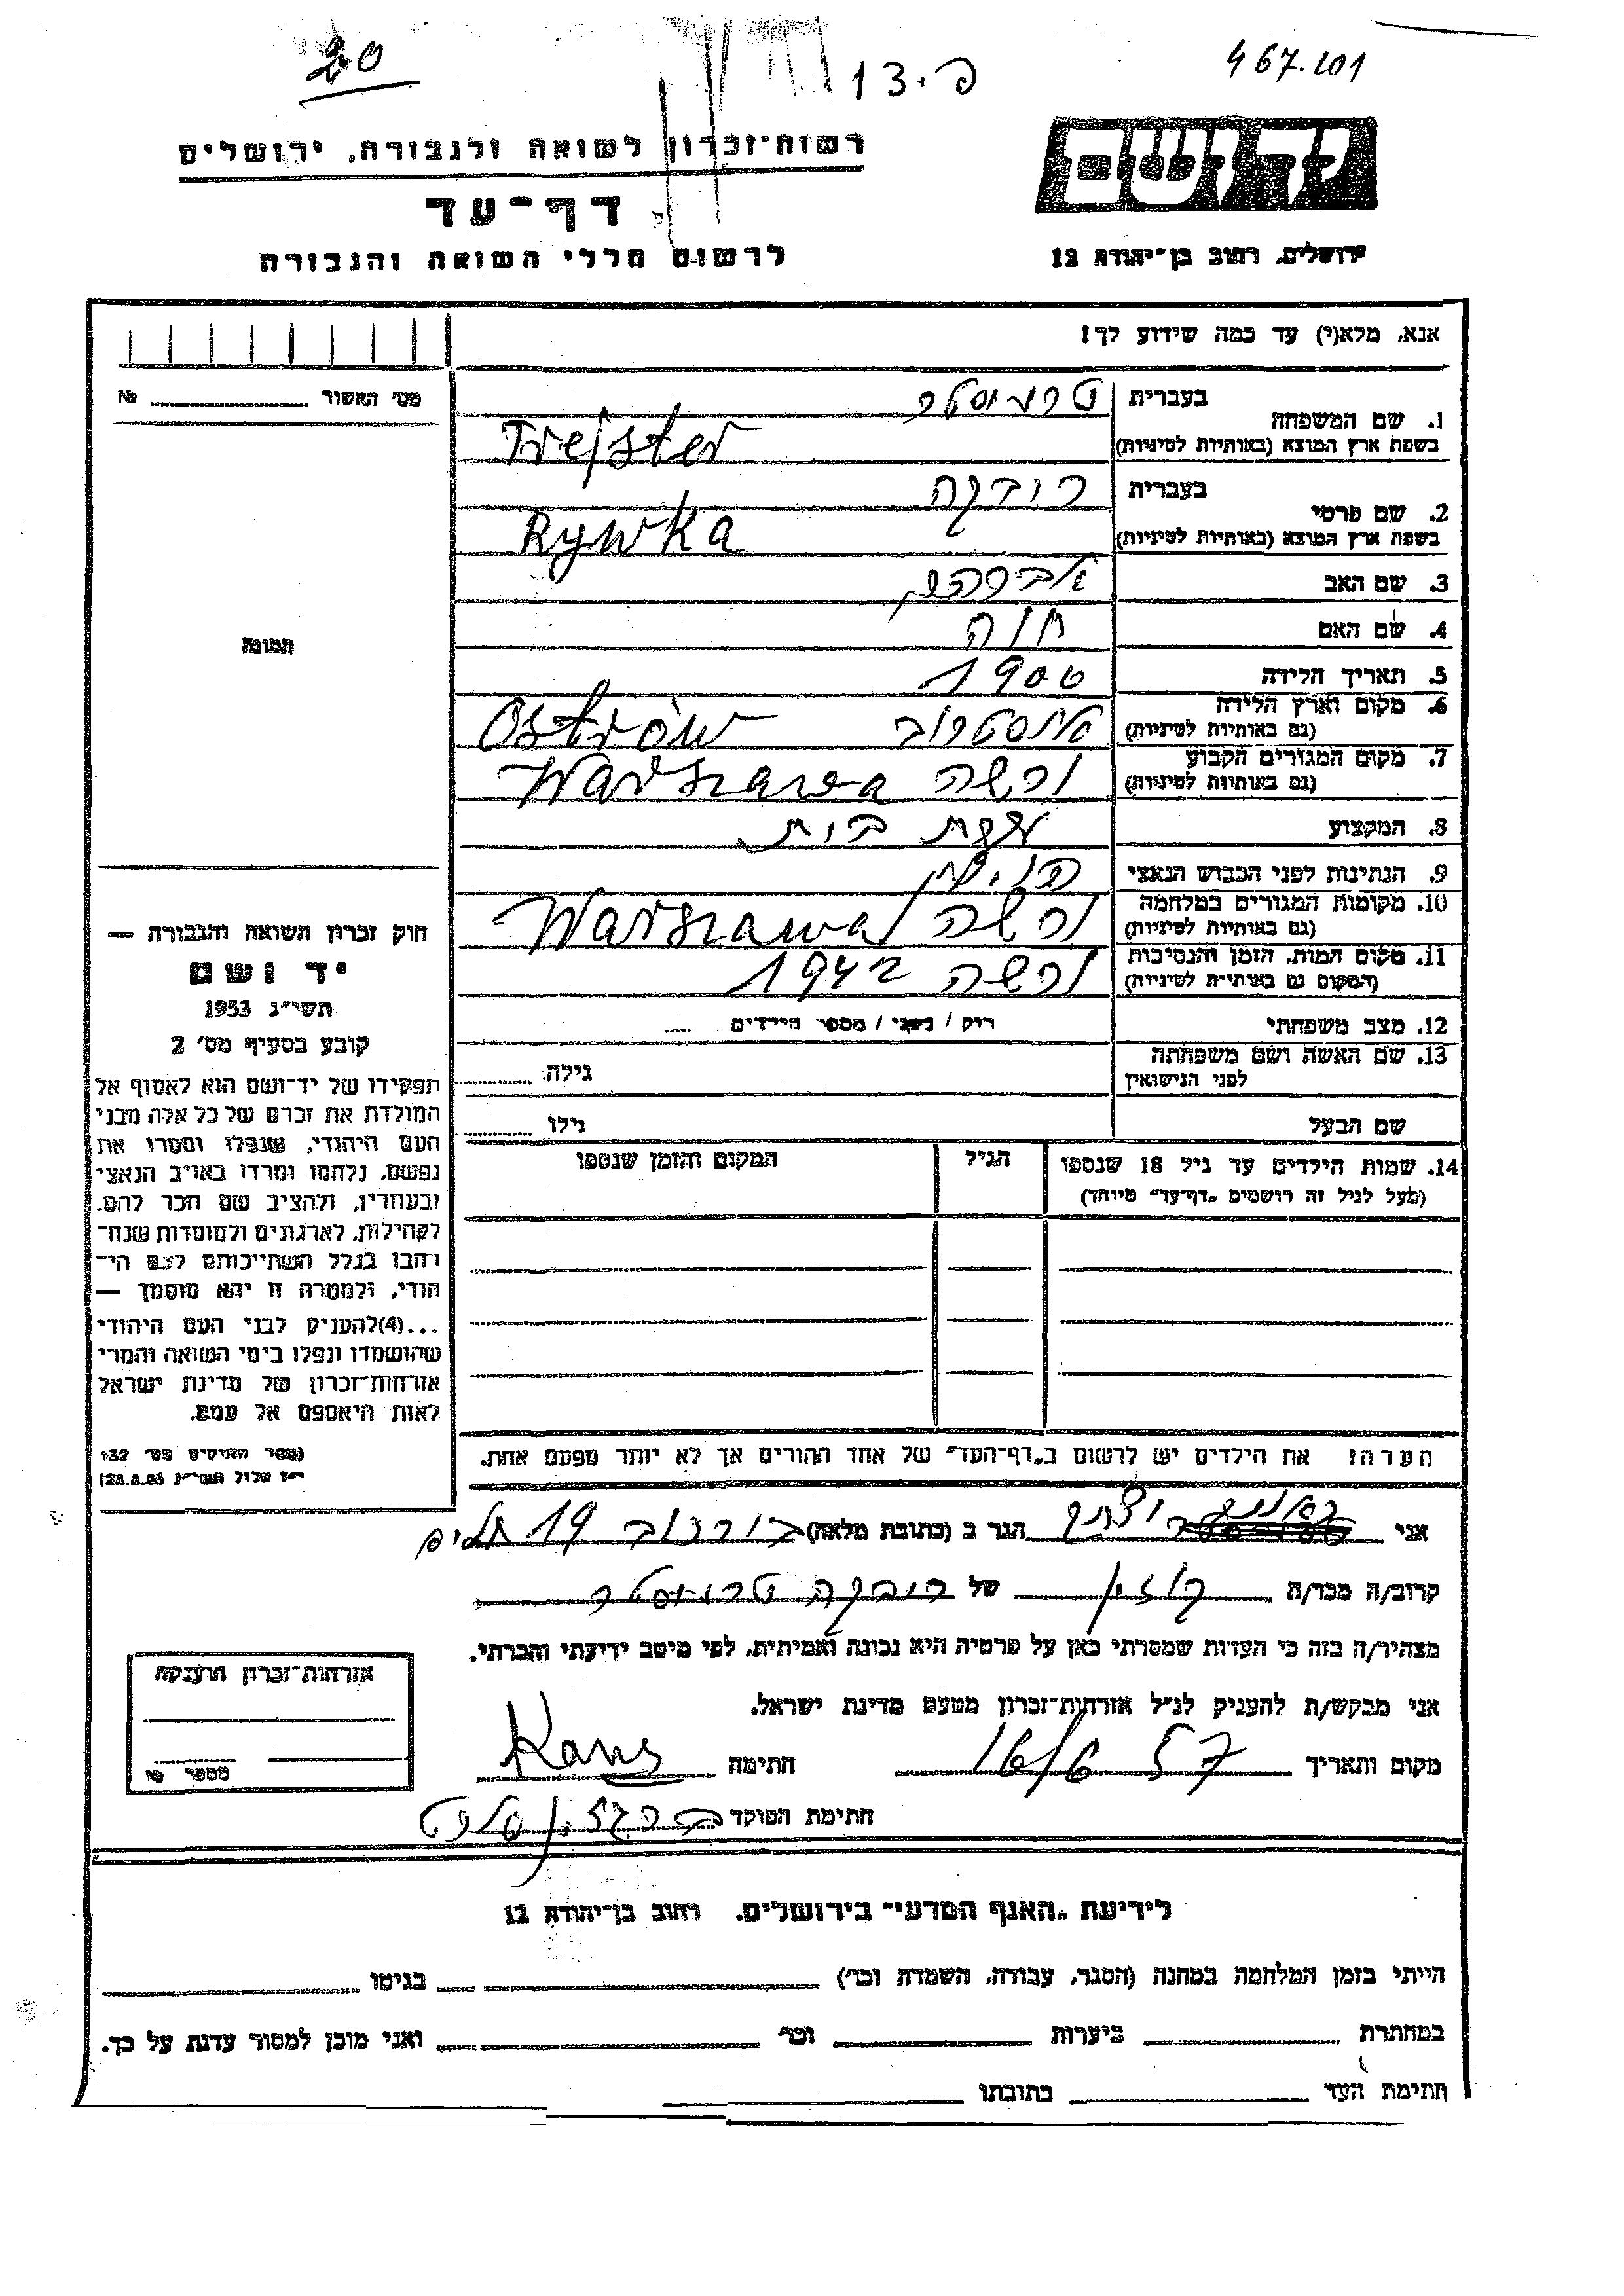 20
פ. 13
467.101
רשות-זכרון לשואה ולגבורה, ירושלים
דף-עד
לרשום חללי השואה והגבורה
ידושם
ירושלים, רחוב בן-יהודה 12
אנא, מלא(י) עד כמה שידוע לך!
מס' האשור № 
1. שם המשפחה
בעברית טרייסטר
בשפת ארץ המוצא (באותיות לטיניות) Trejster
2. שם פרטי
בעברית רובקה
בשפת ארץ המוצא (באותיות לטיניות) Rywka
3. שם האב אברהם
4. שם האם חוה
5. תאריך הלידה 1900
6. מקום וארץ הלידה
(גם באותיות לטיניות) אוסטרוב Ostrów
7. מקום המגורים הקבוע
(גם באותיות לטיניות) ורשה Warszawa
8. המקצוע עקרת בית
9. הנתינות לפני הכבוש הנאצי פולין
10. מקומות המגורים במלחמה
(גם באותיות לטיניות) ורשה Warszawa
11. מקום המות, הזמן והנסיבות
(המקום גם באותיות לטיניות) ורשה 1942
12. מצב משפחתי רוק / נשוי / מספר הילדים
13. שם האשה ושם משפחתה
לפני הנישואין גילה
שם הבעל גילו
14. שמות הילדים עד גיל 18 שנספו
(מעל לגיל זה רושמים „דף-עד" מיוחד)
הגיל
המקום והזמן שנספו
הערה: את הילדים יש לרשום ב„דף-העד" של אחד ההורים אך לא יותר מפעם אחת.
תמונה
חוק זכרון השואה והגבורה —
יד ושם
תשי"ג 1953
קובע בסעיף מס' 2
תפקידו של יד-ושם הוא לאסוף אל
המולדת את זכרם של כל אלה מבני
העם היהודי, שנפלו ומסרו את
נפשם, נלחמו ומרדו באויב הנאצי
ובעוזריו, ולהציב שם וזכר להם,
לקהילות, לארגונים ולמוסדות שנח-
רבו בגלל השתייכותם לעם הי-
הודי, ולמטרה זו יהא מוסמך —
...(4)להעניק לבני העם היהודי
שהושמדו ונפלו בימי השואה והמרי
אזרחות-זכרון של מדינת ישראל
לאות היאספם אל עמם.
(ספר החוקים מס' 132
י"ז אלול תשי"ג 28.8.53)
אני הגר ב (כתובת מלאה) 19
קרוב/ה מכר/ה של רובקה טרייסטר
מצהיר/ה בזה כי העדות שמסרתי כאן על פרטיה היא נכונה ואמיתית, לפי מיטב ידיעתי והכרתי.
אני מבקש/ת להעניק לנ"ל אזרחות-זכרון מטעם מדינת ישראל.
מקום ותאריך 16/6 57 חתימה
חתימת הפוקד
אזרחות-זכרון הוענקה
מספר
לידיעת „האגף המדעי" בירושלים, רחוב בן-יהודה 12
הייתי בזמן המלחמה במחנה (הסגר, עבודה, השמדה וכו') בגיטו
במחתרת ביערות וכו' ואני מוכן למסור עדות על כך.
חתימת העד כתובתו